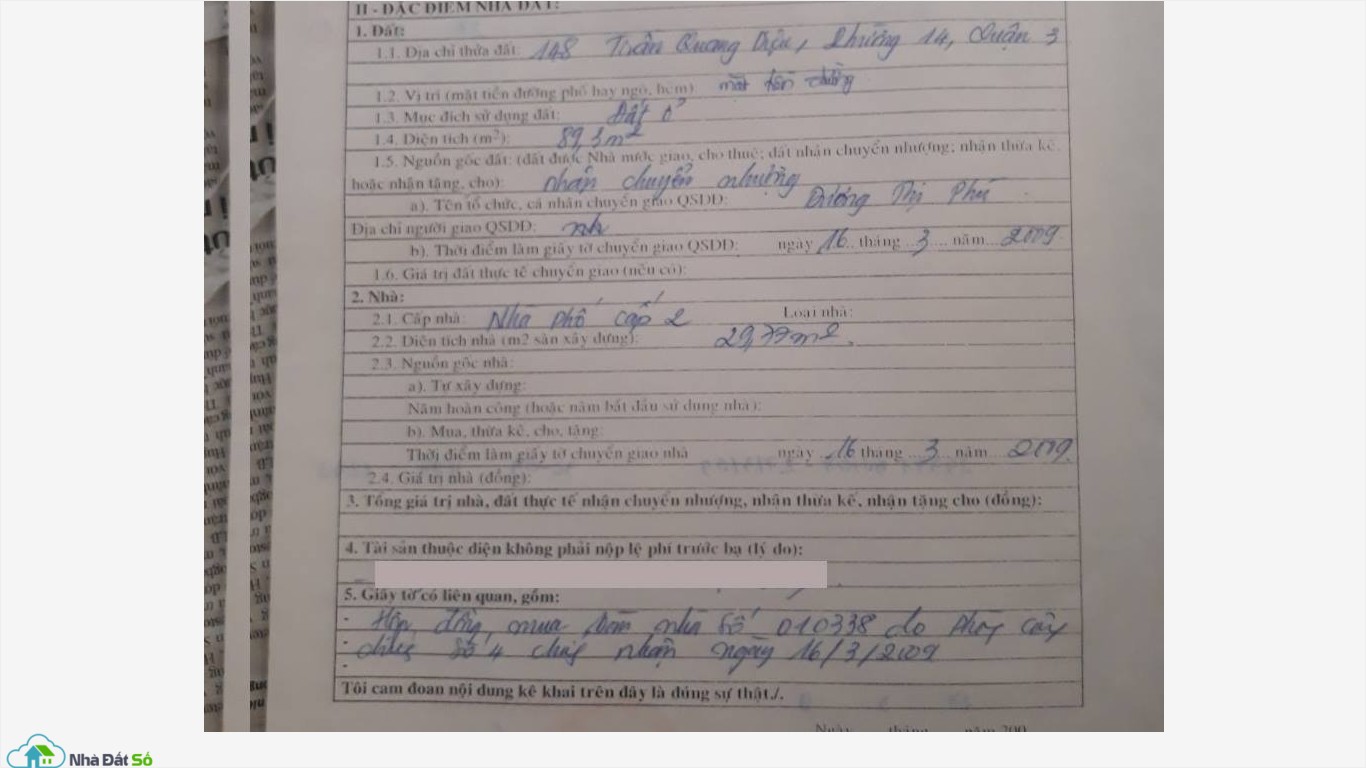 II - ĐẶC ĐIỂM NHÀ ĐẤT:
1. Đất:
1.1. Địa chỉ thửa đất: 148 Trần Quang Diệu, Phường 14, Quận 3
1.2. Vị trí (mặt tiền đường phố hay ngõ, hẻm) mặt tiền đường
1.3. Mục đích sử dụng đất: Đất ở
1.4. Diện tích (m²): 89,3m²
1.5. Nguồn gốc đất: (đất được Nhà nước giao, cho thuê; đất nhận chuyển nhượng; nhận thừa kế,
hoặc nhận tặng, cho): nhận chuyển nhượng
a). Tên tổ chức, cá nhân chuyển giao QSDĐ: Dương Thị Phú
Địa chỉ người giao QSDĐ:
b). Thời điểm làm giấy tờ chuyển giao QSDĐ: ngày 16 tháng 3 năm 2009
1.6. Giá trị đất thực tế chuyển giao (nếu có):
2. Nhà:
2.1. Cấp nhà: Nhà phố cấp 2 Loại nhà:
2.2. Diện tích nhà (m2 sàn xây dựng): 29,77m2.
2.3. Nguồn gốc nhà:
a). Tự xây dựng:
Năm hoàn công (hoặc năm bắt đầu sử dụng nhà):
b). Mua, thừa kế, cho, tặng:
Thời điểm làm giấy tờ chuyển giao nhà ngày 16 tháng 3 năm 2009
2.4. Giá trị nhà (đồng):
3. Tổng giá trị nhà, đất thực tế nhận chuyển nhượng, nhận thừa kế, nhận tặng cho (đồng):
4. Tài sản thuộc diện không phải nộp lệ phí trước bạ (lý do):
5. Giấy tờ có liên quan, gồm:
- Hợp đồng mua bán nhà số 010338 do Phòng công
- chứng số 4 chứng nhận ngày 16/3/2009
-
Tôi cam đoan nội dung kê khai trên đây là đúng sự thật./.
Ngày tháng năm 200
Nhà Đất Số